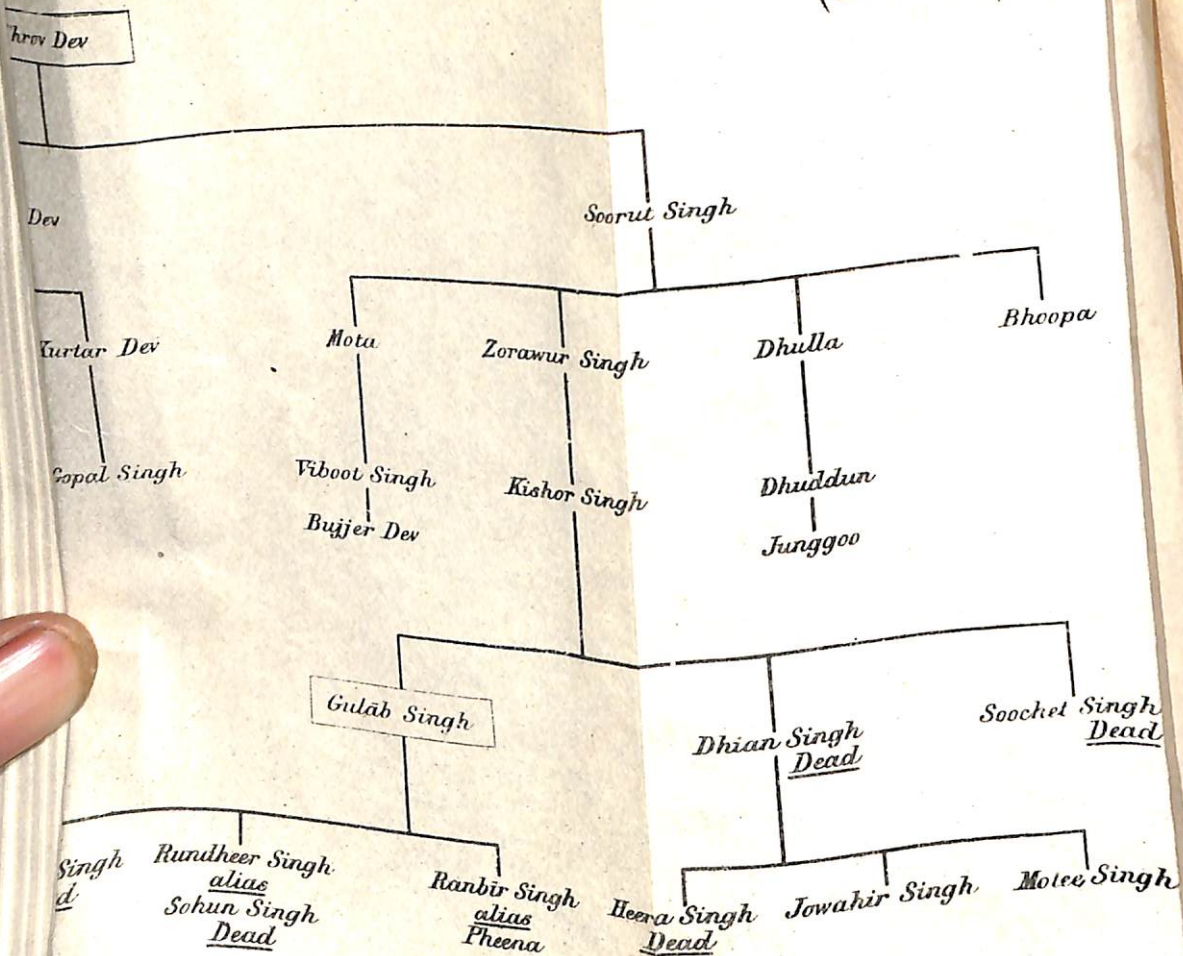 Dev
Dev
Soorut Singh
Kurtar Dev
Motu
Zorawur Singh
Dhulla
Bhoopa
Gopal Singh
Viboot Singh
Kishor Singh
Dhuddun
Bujjer Dev
Junggoo
Gulāb Singh
Dhian Singh
Dead
Soochet Singh
Dead
Singh
Rundheer Singh
alias
Sohun Singh
Dead
Ranbir Singh
alias
Pheena
Heera Singh
Dead
Jowahir Singh
Motee Singh